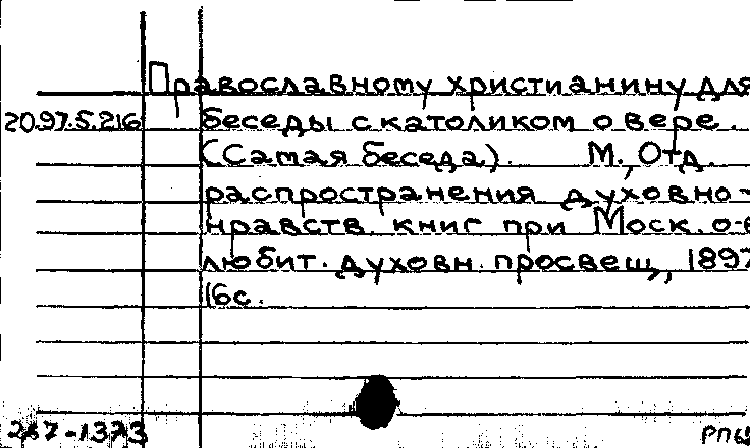 Православному христианину для
20.97.5.216 беседы с католиком о вере.
(Самая беседа). М., Отд.
распространения духовно-
нравств. книг при Моск. о-в
любит. духовн. просвещ., 1897
16с.
267-1373